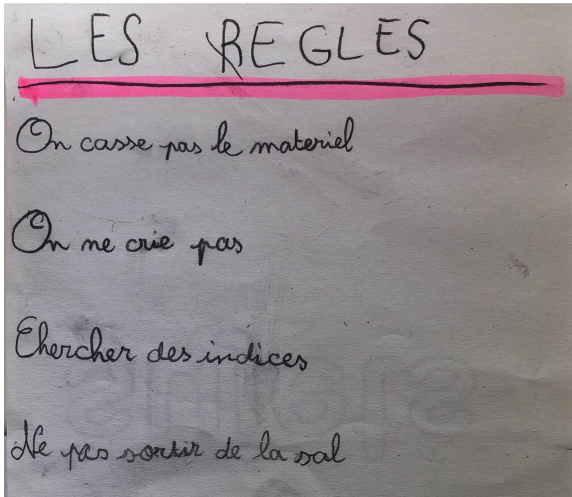 LES REGLES
On casse pas le materiel
On ne crie pas
Chercher des indices
Ne pas sortir de la sal